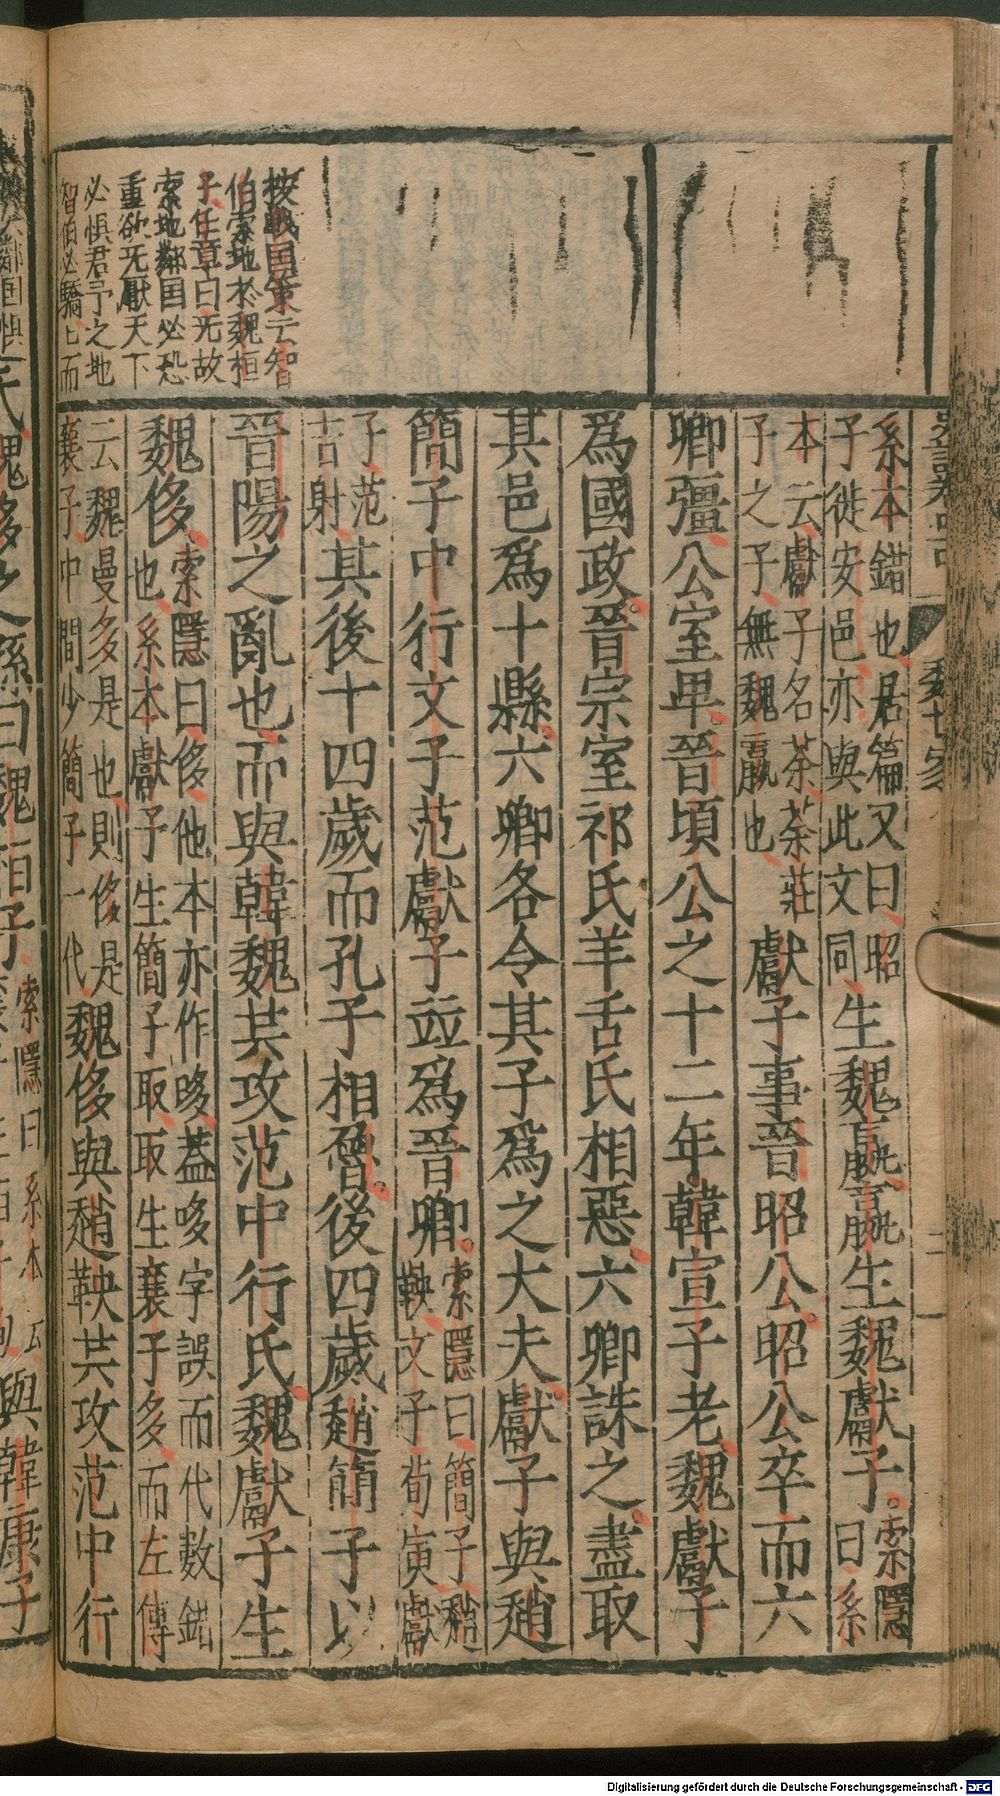 系本錯也居篇又曰昭
子徙安邑亦與此文同
生魏嬴嬴生魏獻子
索隱
曰系
本云獻子名荼荼莊
子之子無魏嬴也
獻子事晉昭公昭公卒而六
卿彊公室卑晉頃公之十二年韓宣子老魏獻子
爲國政晉宗室祁氏羊舌氏相惡六卿誅之盡取
其邑爲十縣六卿各令其子爲之大夫獻子與趙
簡子中行文子范獻子並爲晉卿
索隱曰簡子趙
鞅文子荀寅獻
子范
吉射
其後十四歲而孔子相魯後四歲趙簡子以
晉陽之亂也而與韓魏共攻范中行氏魏獻子生
魏侈
索隱曰侈他本亦作哆蓋哆字誤而代數錯
也系本獻子生簡子取取生襄子多而左傳
云魏曼多是也則侈是
襄子中間少簡子一代
魏侈與趙鞅共攻范中行
按戰国策云智
伯索地於魏桓
子任章曰无故
索地鄰国必恐
重欲无厭天下
必懼君予之地
智伯必驕而
氏魏侈之孫曰魏桓子
索隱曰系本云
與韓康子
魏世家
二
Digitalisierung gefördert durch die Deutsche Forschungsgemeinschaft - DFG